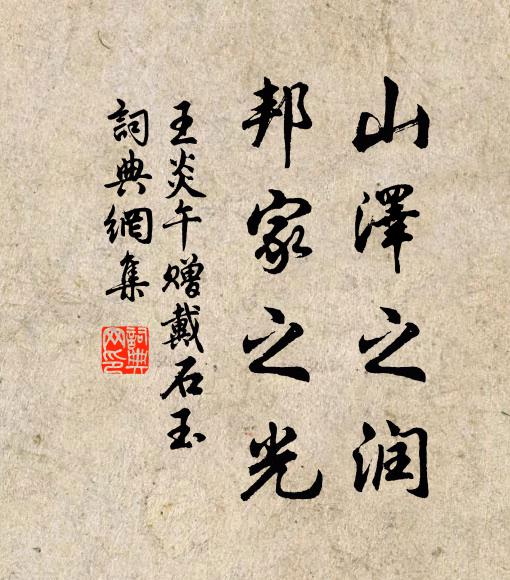 山澤之润
邦家之光
王炎午赠戴石玉
詞典網集
詞典网印